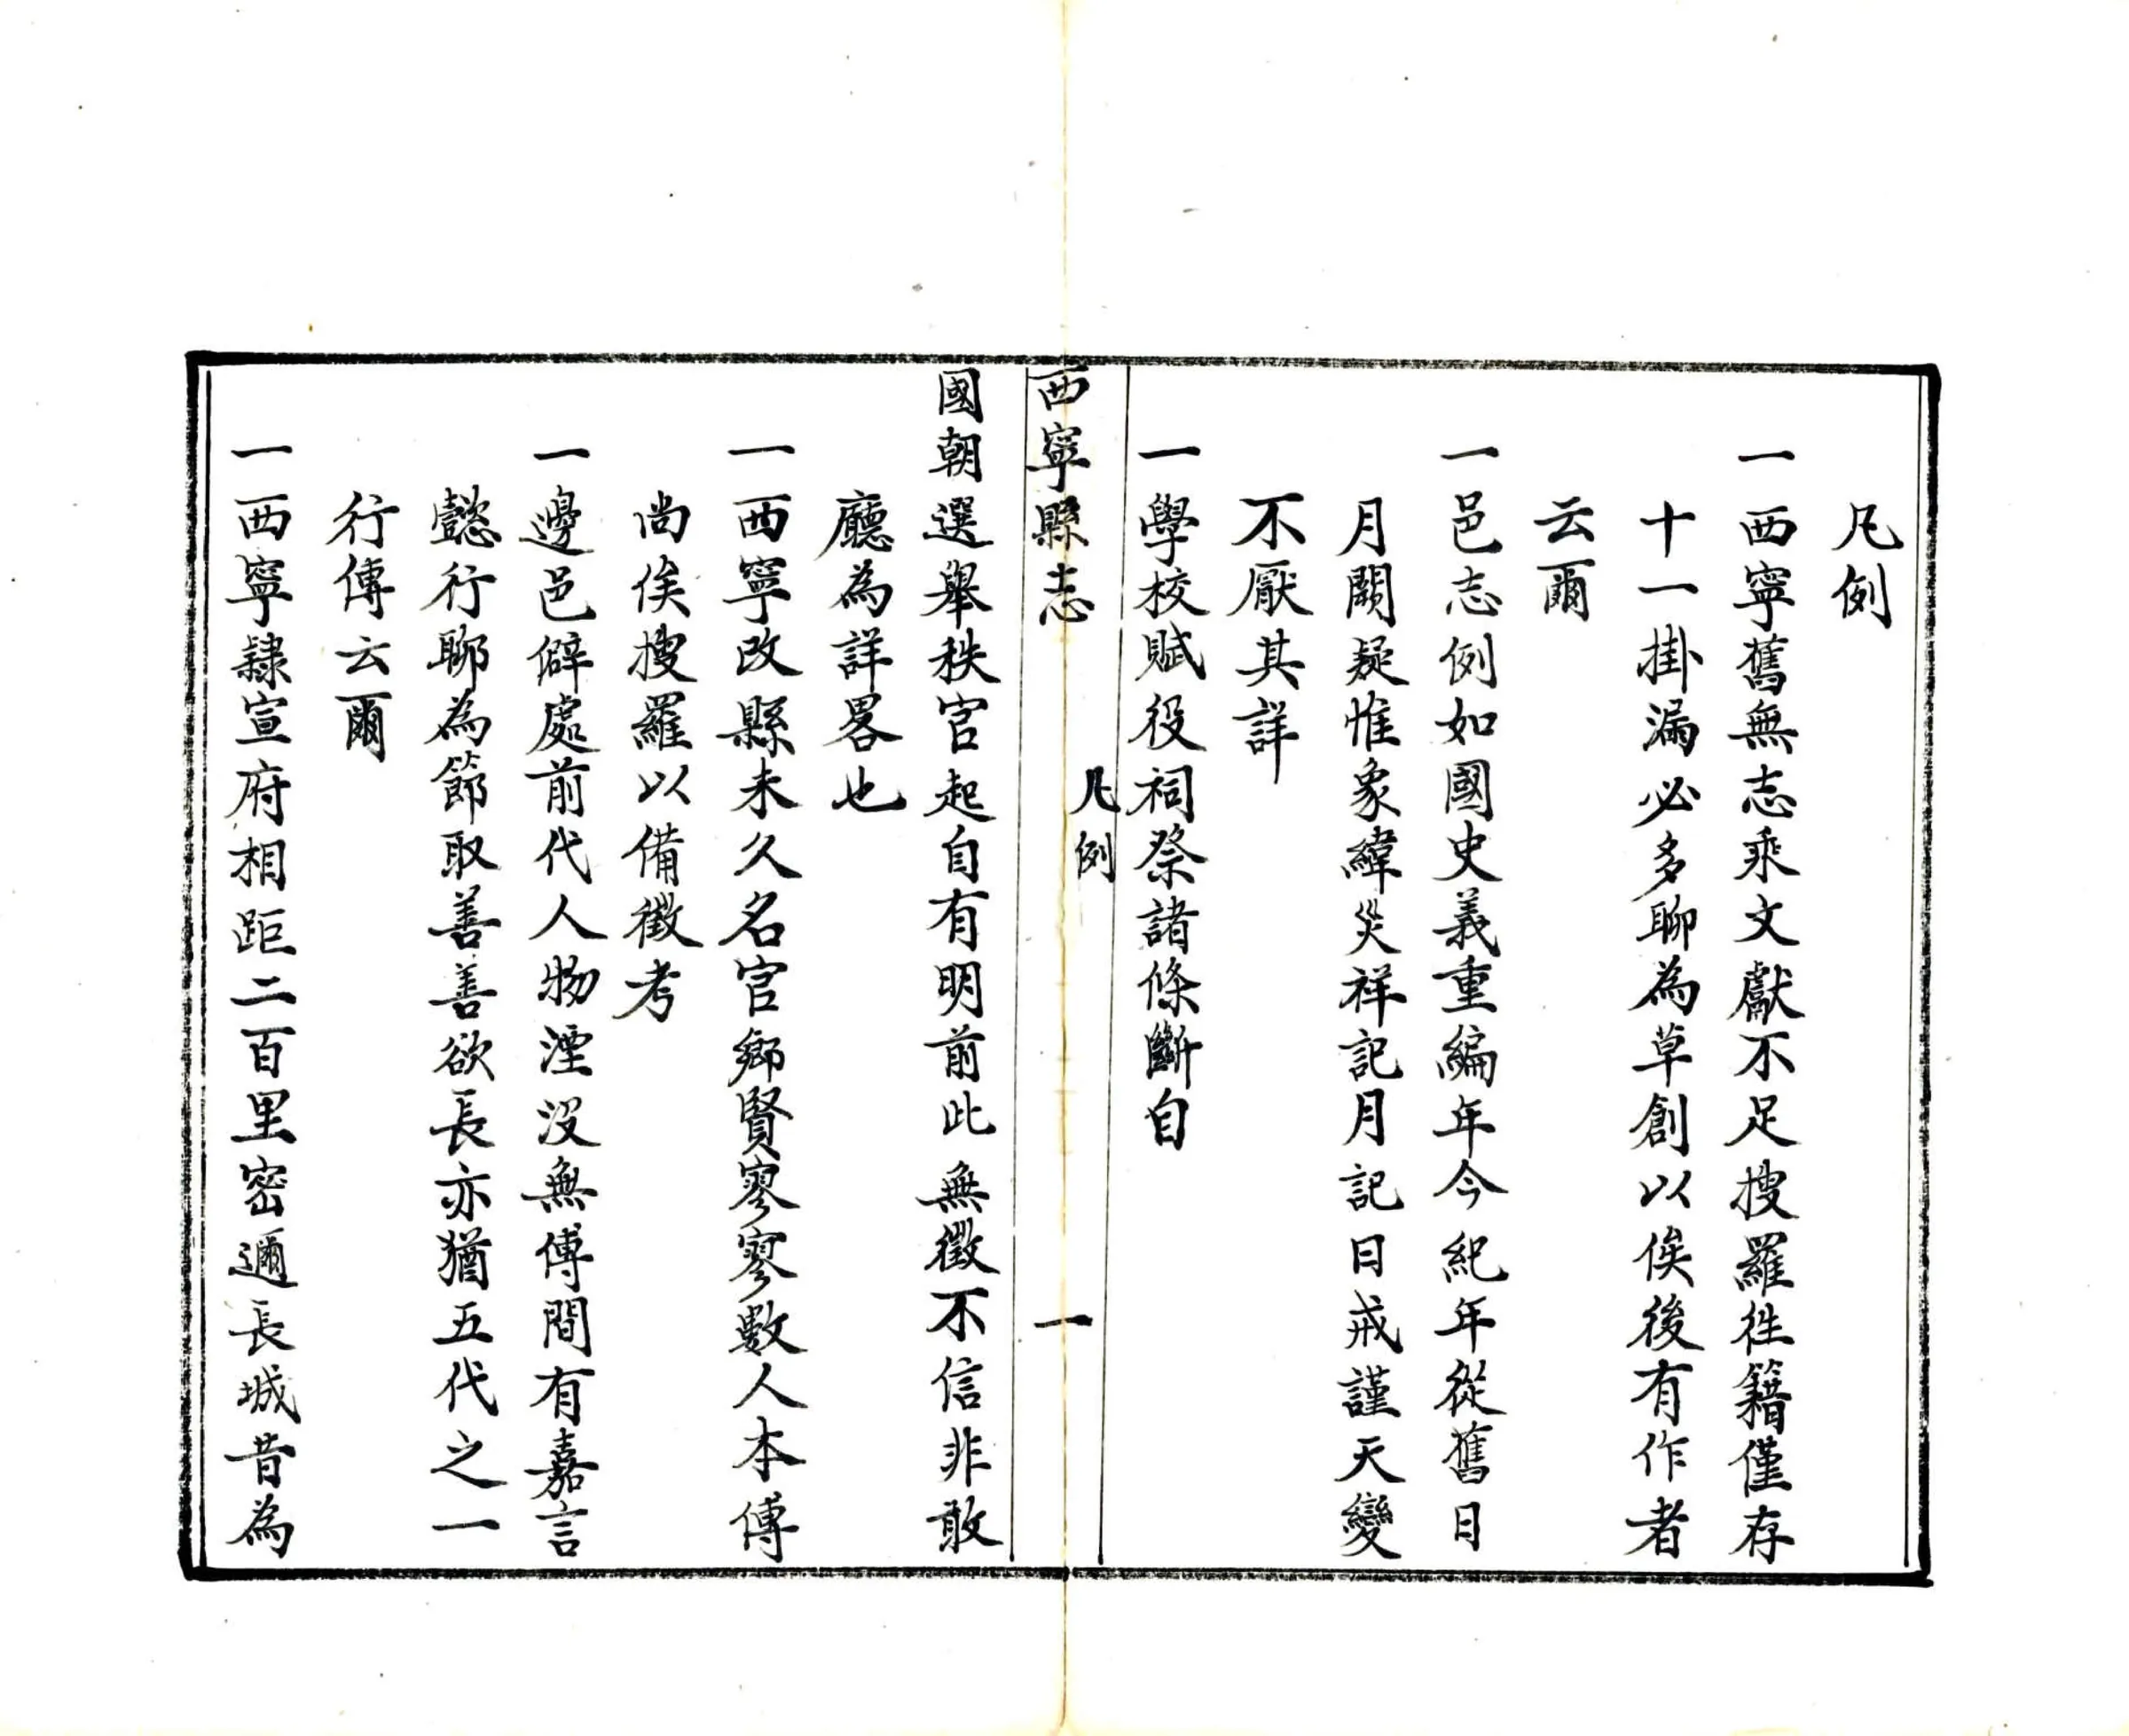 凡例
一西寧舊無志乘文獻不足搜羅徃籍僅存
十一掛漏必多聊為草創以俟後有作者
云爾
一邑志例如國史義重編年今紀年從舊日
月闕疑惟象緯災祥記月記日戒謹天變
不厭其詳
一學校賦役祠祭諸條斷自
西寧縣志
凡例
一
國朝選舉秩官起自有明前此無徵不信非敢
廳為詳畧也
一西寧改縣未久名官鄉賢寥寥數人本傳
尚俟搜羅以備徵考
一邊邑僻處前代人物湮沒無傳間有嘉言
懿行聊為節取善善欲長亦猶五代之一
行傳云爾
一西寧隸宣府相距二百里密邇長城昔為